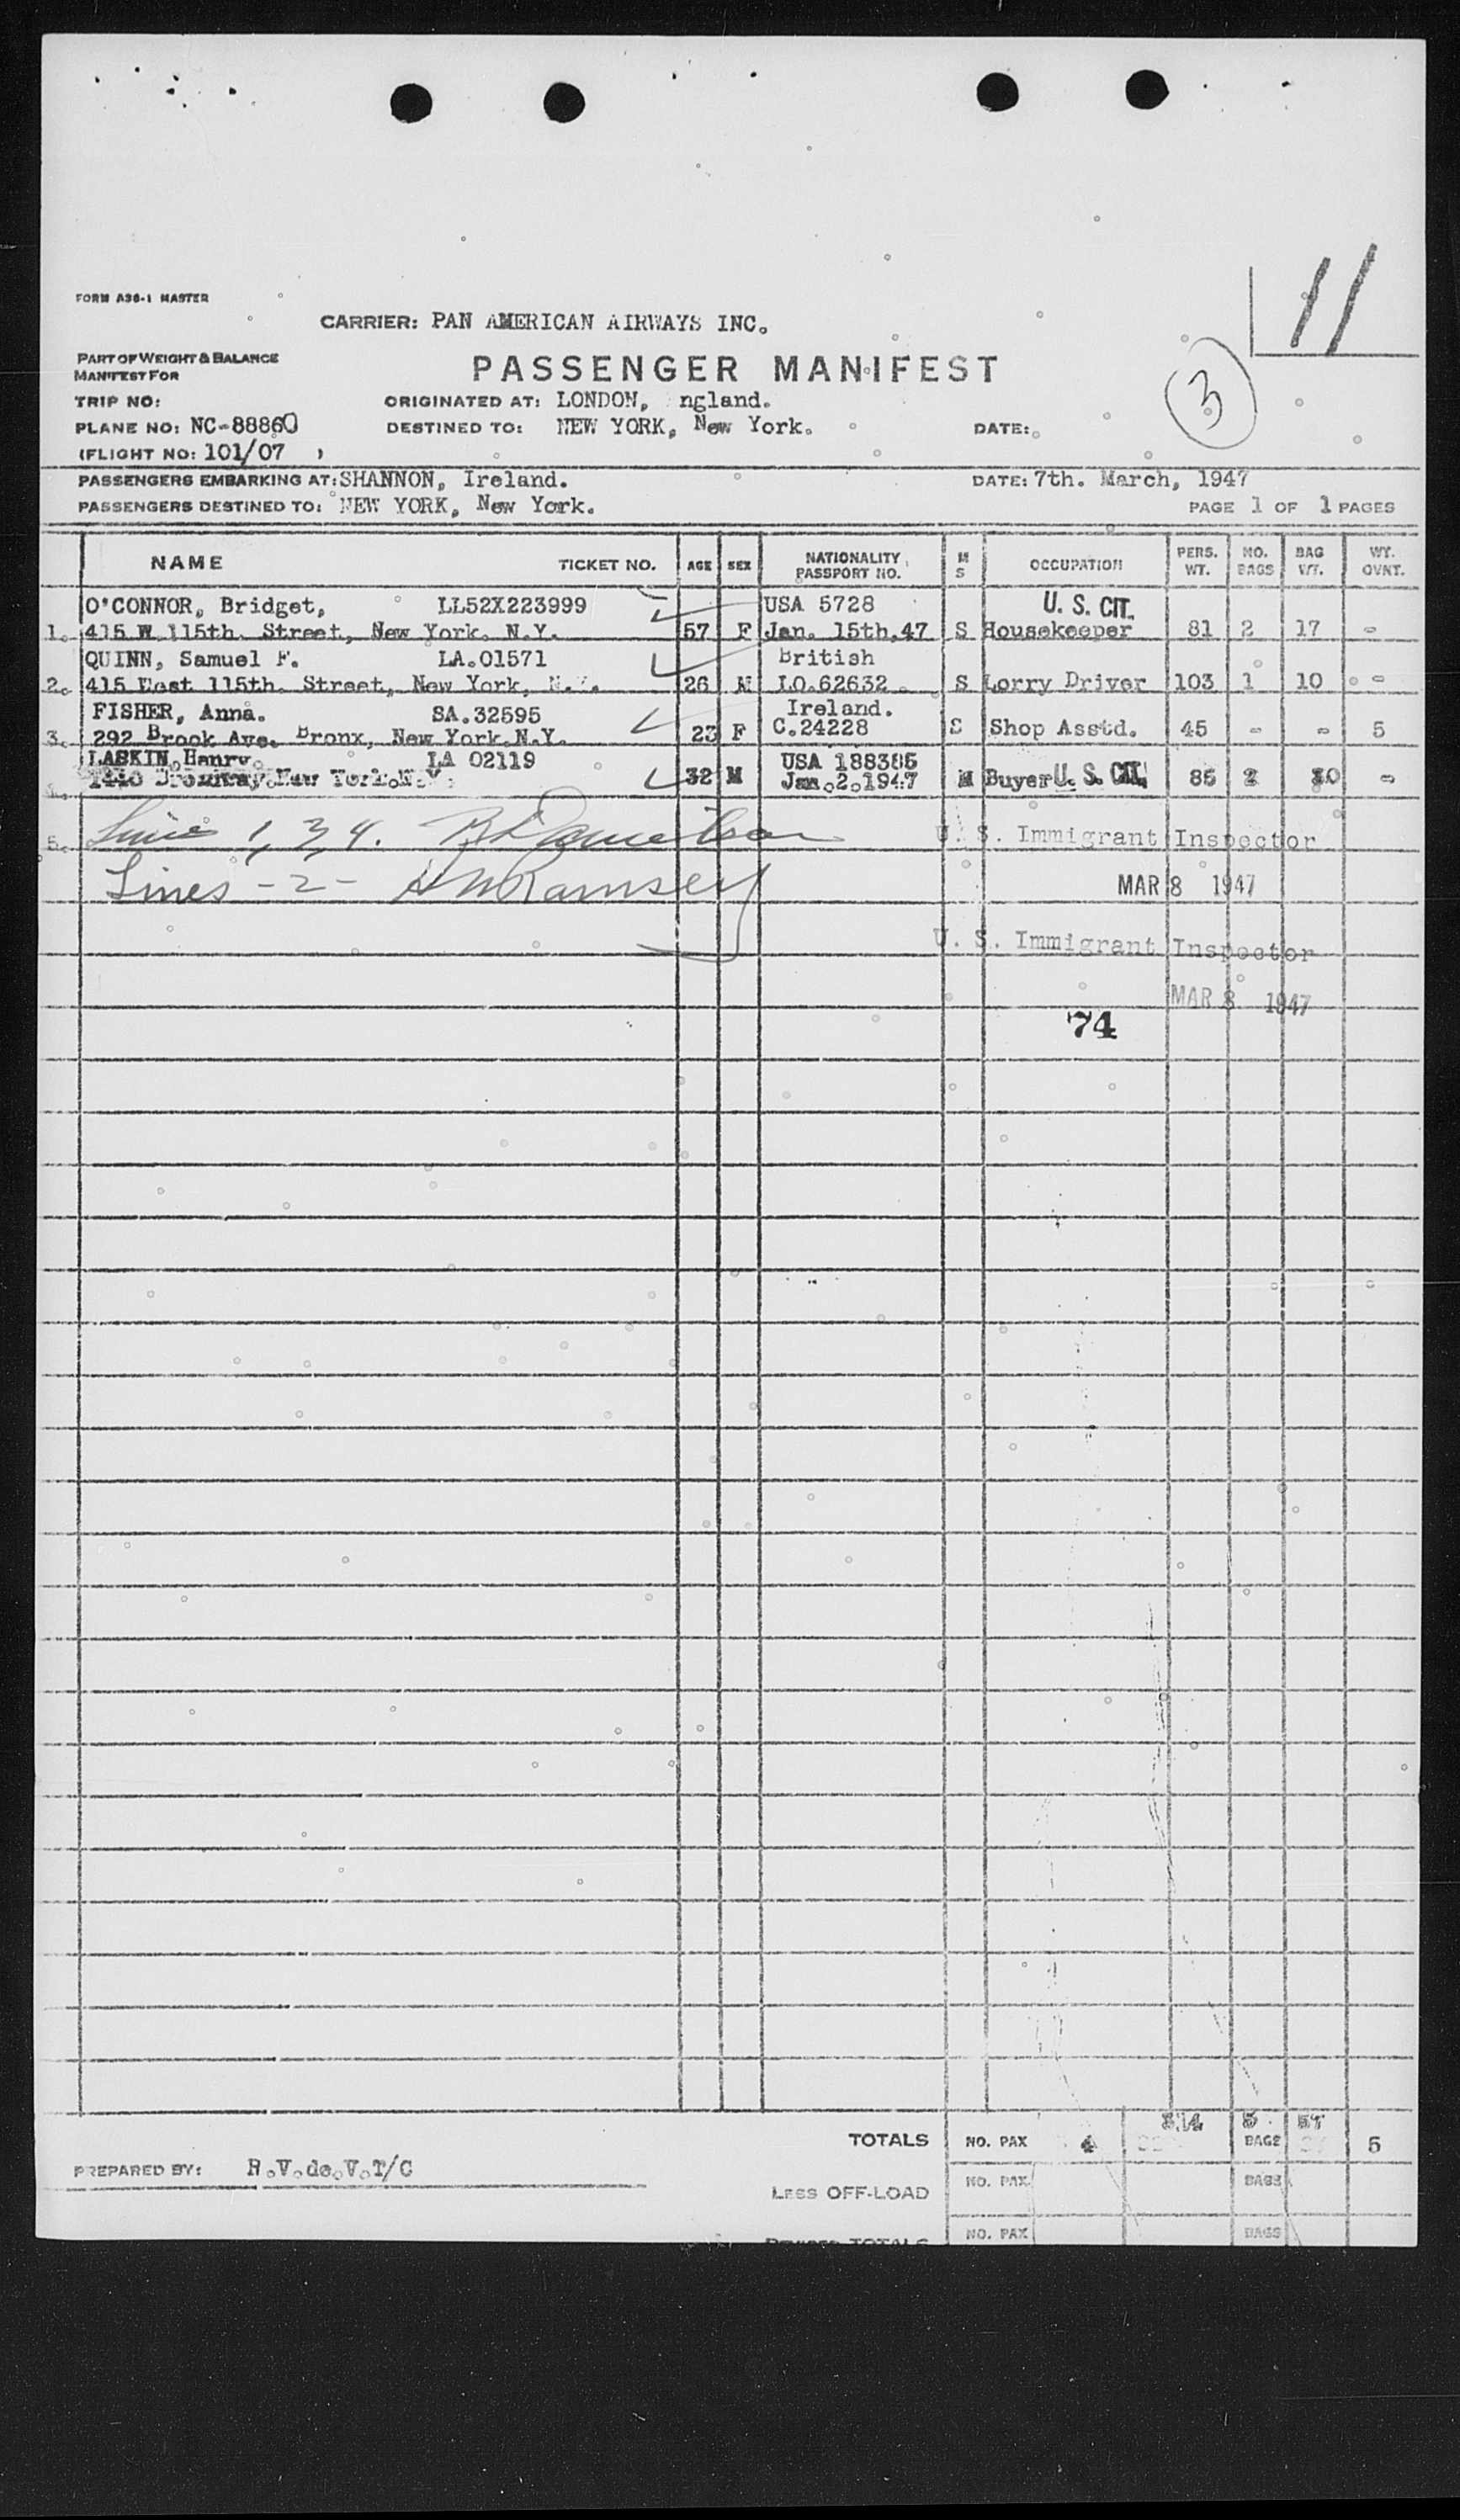 11
FORM A36-1 MASTER
CARRIER: PAN AMERICAN AIRWAYS INC.
3
PART OF WEIGHT & BALANCE
MANIFEST FOR
PASSENGER MANIFEST
TRIP NO:
ORIGINATED AT: LONDON, ngland.
PLANE NO: NC-88860
DESTINED TO: NEW YORK, New York.
DATE:
(FLIGHT NO: 101/07 )
PASSENGERS EMBARKING AT: SHANNON, Ireland.
DATE: 7th. March, 1947
PASSENGERS DESTINED TO: NEW YORK, New York.
PAGE 1 OF 1 PAGES
NAME TICKET NO. AGE SEX NATIONALITY PASSPORT NO. M S OCCUPATION PERS. WT. NO. BAGS BAG WT. WT. OVNT.
O'CONNOR, Bridget, LL52X223999 USA 5728 U. S. CIT.
1. 415 W 115th. Street, New York. N.Y. 57 F Jan. 15th,47 S Housekeeper 81 2 17 -
QUINN, Samuel F. LA.01571 British
2. 415 East 115th. Street, New York, N.Y. 26 M I.O.62632 S Lorry Driver 103 1 10 -
FISHER, Anna. SA.32595 Ireland.
3. 292 Brook Ave. Bronx, New York.N.Y. 23 F C.24228 S Shop Asstd. 45 - - 5
LASKIN, Henry. LA 02119 USA 188385
1440 Broadway.New York.N.Y. 32 M Jan.2.1947 M Buyer U. S. CIT. 85 2
5. Line 1, 3, 4.
U. S. Immigrant Inspector
Lines - 2 - Ramsey
MAR 8 1947
U. S. Immigrant Inspector
MAR 8 1947
74
TOTALS NO. PAX 4 314 5 BAGS 57 5
PREPARED BY: R.V.de.V.T/C
LESS OFF-LOAD NO. PAX BAGS
NO. PAX BAGS